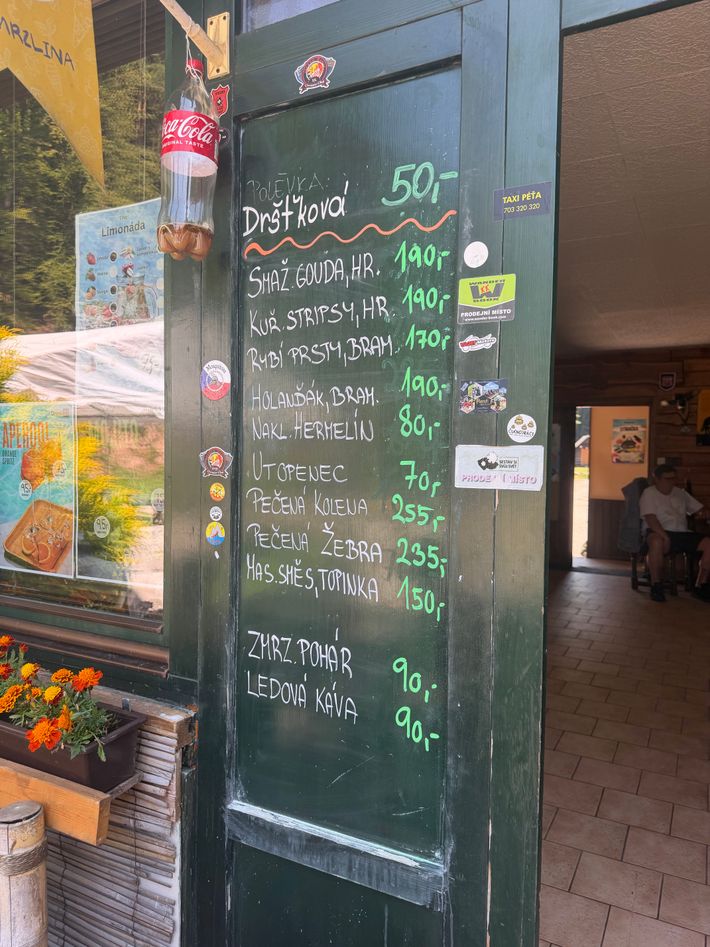 MRZLINA
Coca-Cola
ORIGINAL TASTE
Limonáda
POLÉVKA
Dršťková 50,-
SMAŽ. GOUDA, HR. 190,-
KUŘ. STRIPSY, HR. 190,-
RYBÍ PRSTY, BRAM. 170,-
HOLANĎÁK, BRAM. 190,-
NAKL. HERMELÍN 80,-
UTOPENEC 70,-
PEČENÁ KOLENA 255,-
PEČENÁ ŽEBRA 235,-
MAS. SMĚS, TOPINKA 150,-
ZMRZ. POHÁR 90,-
LEDOVÁ KÁVA 90,-
TAXI PÉŤA
703 320 320
WANDER
BOOK
PRODEJNÍ MÍSTO
www.wander-book.com
PRODEJNÍ MÍSTO
APEROL
95
95
95